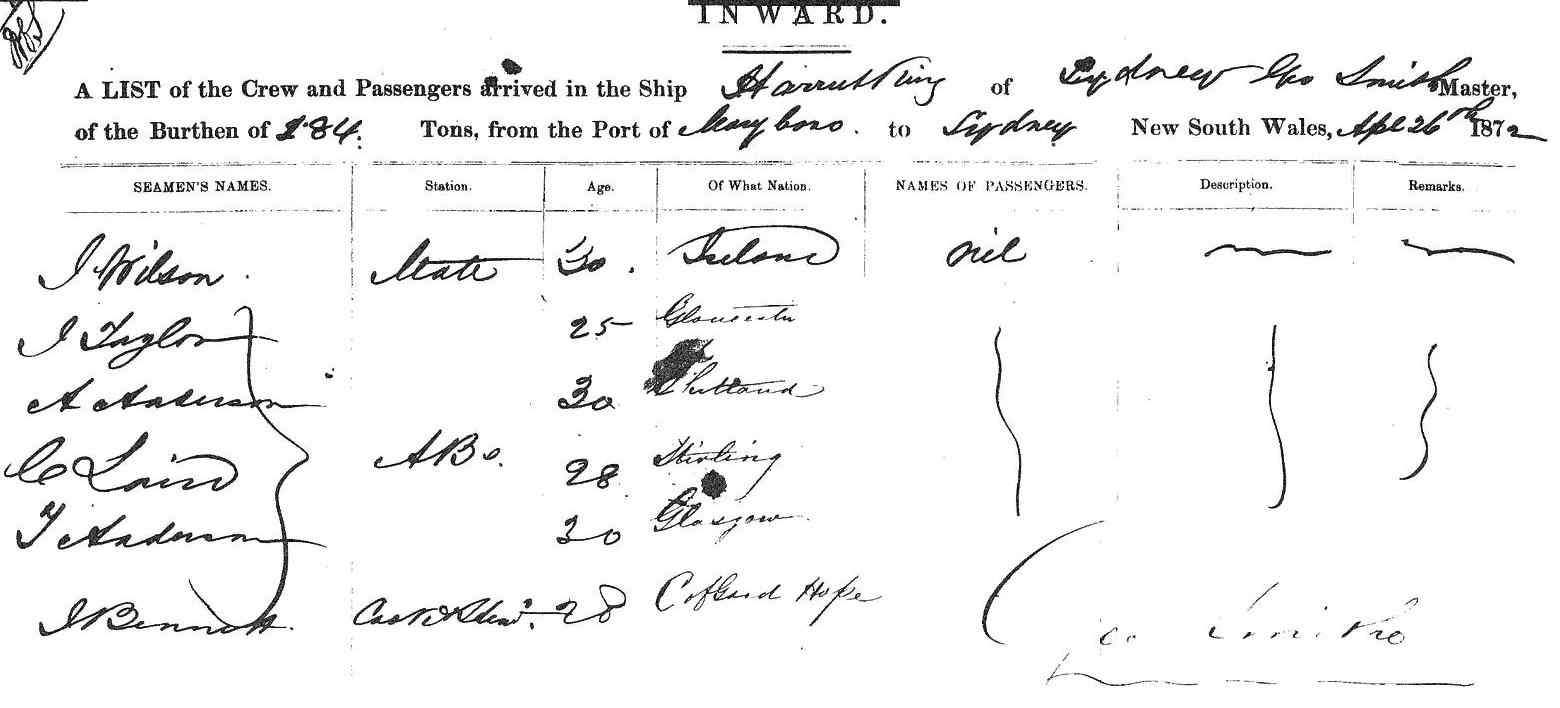 INWARD.
A LIST of the Crew and Passengers arrived in the Ship Harriet King of Sydney Geo Smith Master,
of the Burthen of 284 Tons, from the Port of Maryboro. to Sydney New South Wales, Apl 26th 1872
SEAMEN'S NAMES. Station. Age. Of What Nation. NAMES OF PASSENGERS. Description. Remarks.
J Wilson. Mate 30. Ireland nil
J Taylor 25 Gloucester
A Anderson 30 Shetland
C Laird ABs. 28 Stirling
T Anderson 30 Glasgow
J Bennett. Cook & Stew'd. 28 C of Good Hope
Geo Smith